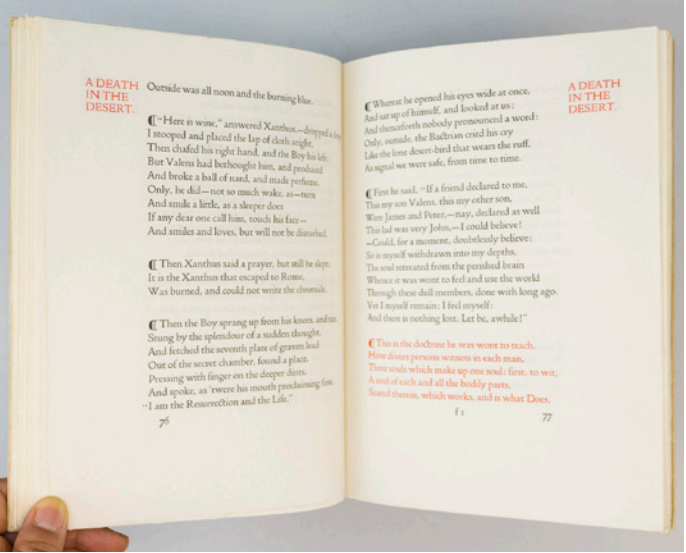 A DEATH
IN THE
DESERT.
Outside was all noon and the burning blue.
❡ "Here is wine," answered Xanthus,—dropped a
I stooped and placed the lap of cloth aright,
Then chafed his right hand, and the Boy his left:
But Valens had bethought him, and produced
And broke a ball of nard, and made perfume.
Only, he did—not so much wake, as—turn
And smile a little, as a sleeper does
If any dear one call him, touch his face—
And smiles and loves, but will not be disturbed.
❡ Then Xanthus said a prayer, but still he slept:
It is the Xanthus that escaped to Rome,
Was burned, and could not write the chronicle.
❡ Then the Boy sprang up from his knees, and ran,
Stung by the splendour of a sudden thought,
And fetched the seventh plate of graven lead
Out of the secret chamber, found a place,
Pressing with finger on the deeper dints,
And spoke, as 'twere his mouth proclaiming first,
"I am the Resurrection and the Life."
76
A DEATH
IN THE
DESERT.
❡ Whereat he opened his eyes wide at once,
And sat up of himself, and looked at us;
And thenceforth nobody pronounced a word:
Only, outside, the Bactrian cried his cry
Like the lone desert-bird that wears the ruff,
As signal we were safe, from time to time.
❡ First he said, "If a friend declared to me,
This my son Valens, this my other son,
Were James and Peter,—nay, declared as well
This lad was very John,—I could believe!
—Could, for a moment, doubtlessly believe:
So is myself withdrawn into my depths,
The soul retreated from the perished brain
Whence it was wont to feel and use the world
Through these dull members, done with long ago.
Yet I myself remain; I feel myself:
And there is nothing lost. Let be, awhile!"
❡ This is the doctrine he was wont to teach,
How divers persons witness in each man,
Three souls which make up one soul: first, to wit,
A soul of each and all the bodily parts,
Seated therein, which works, and is what Does,
f 1
77